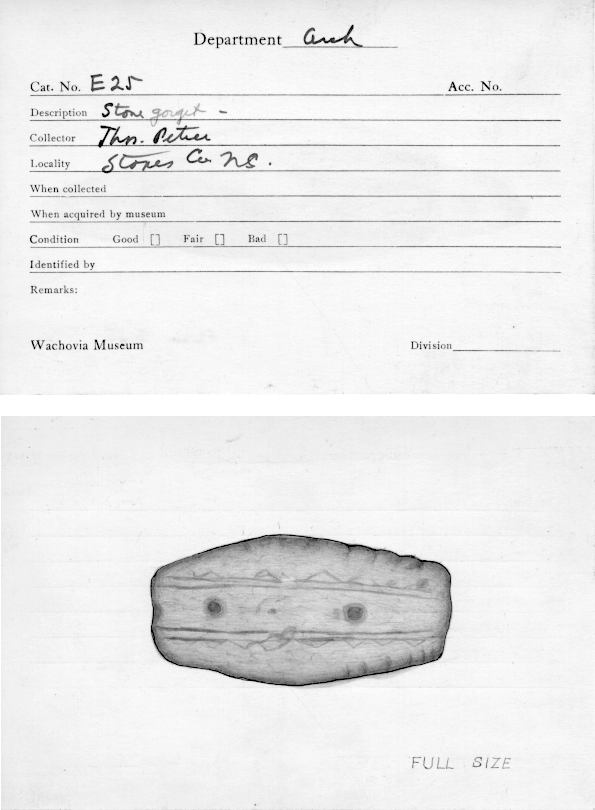 Department Arch
Cat. No. E25 Acc. No.
Description Stone gorget -
Collector Thos. Petree
Locality Stokes Co. NC.
When collected
When acquired by museum
Condition Good [] Fair [] Bad []
Identified by
Remarks:
Wachovia Museum Division
FULL SIZE